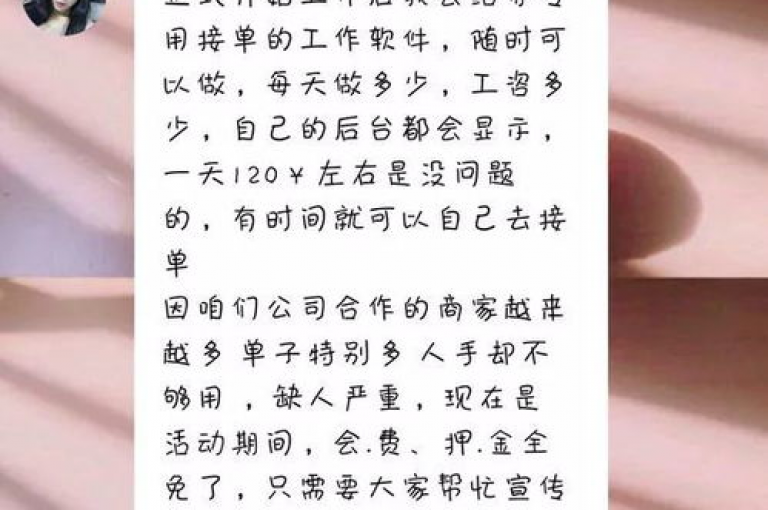 正式开始工作后我会给你专
用接单的工作软件，随时可
以做，每天做多少，工咨多
少，自己的后台都会显示，
一天120￥左右是没问题
的，有时间就可以自己去接
单
因咱们公司合作的商家越来
越多 单子特别多 人手却不
够用 ，缺人严重，现在是
活动期间，会.费、押.金全
免了，只需要大家帮忙宣传